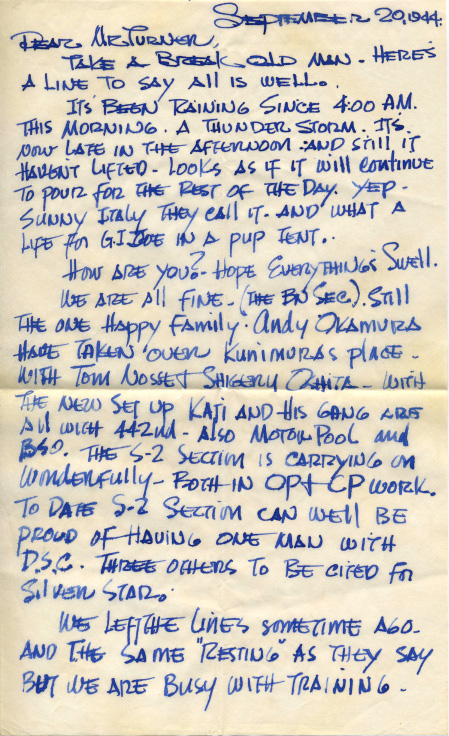 September 20, 1944.
Dear Mr. Turner,
Take a break old man - Here's
a line to say all is well.
It's been raining since 4:00 AM.
this morning. A thunder storm. It's
now late in the afternoon - and still it
haven't lifted - Looks as if it will continue
to pour for the rest of the day. Yep -
Sunny Italy they call it - and what a
life for G.I. Joe in a pup tent.
How are you? - Hope everything's swell.
We are all fine - (the Bn Sec.). Still
the one happy family. Andy Okamura
have taken over Kunimura's place -
with Tom Nosse & Shigeru Oshita - with
the new set up Kaji and his gang are
all with 442nd - also Motor Pool and
BSO. The S-2 Section is carrying on
wonderfully - both in OP & CP work.
To date S-2 Section can well be
proud of having one man with
D.S.C. Three others to be cited for
Silver Star.
We left the lines sometime ago -
and the same "resting" as they say
but we are busy with training -